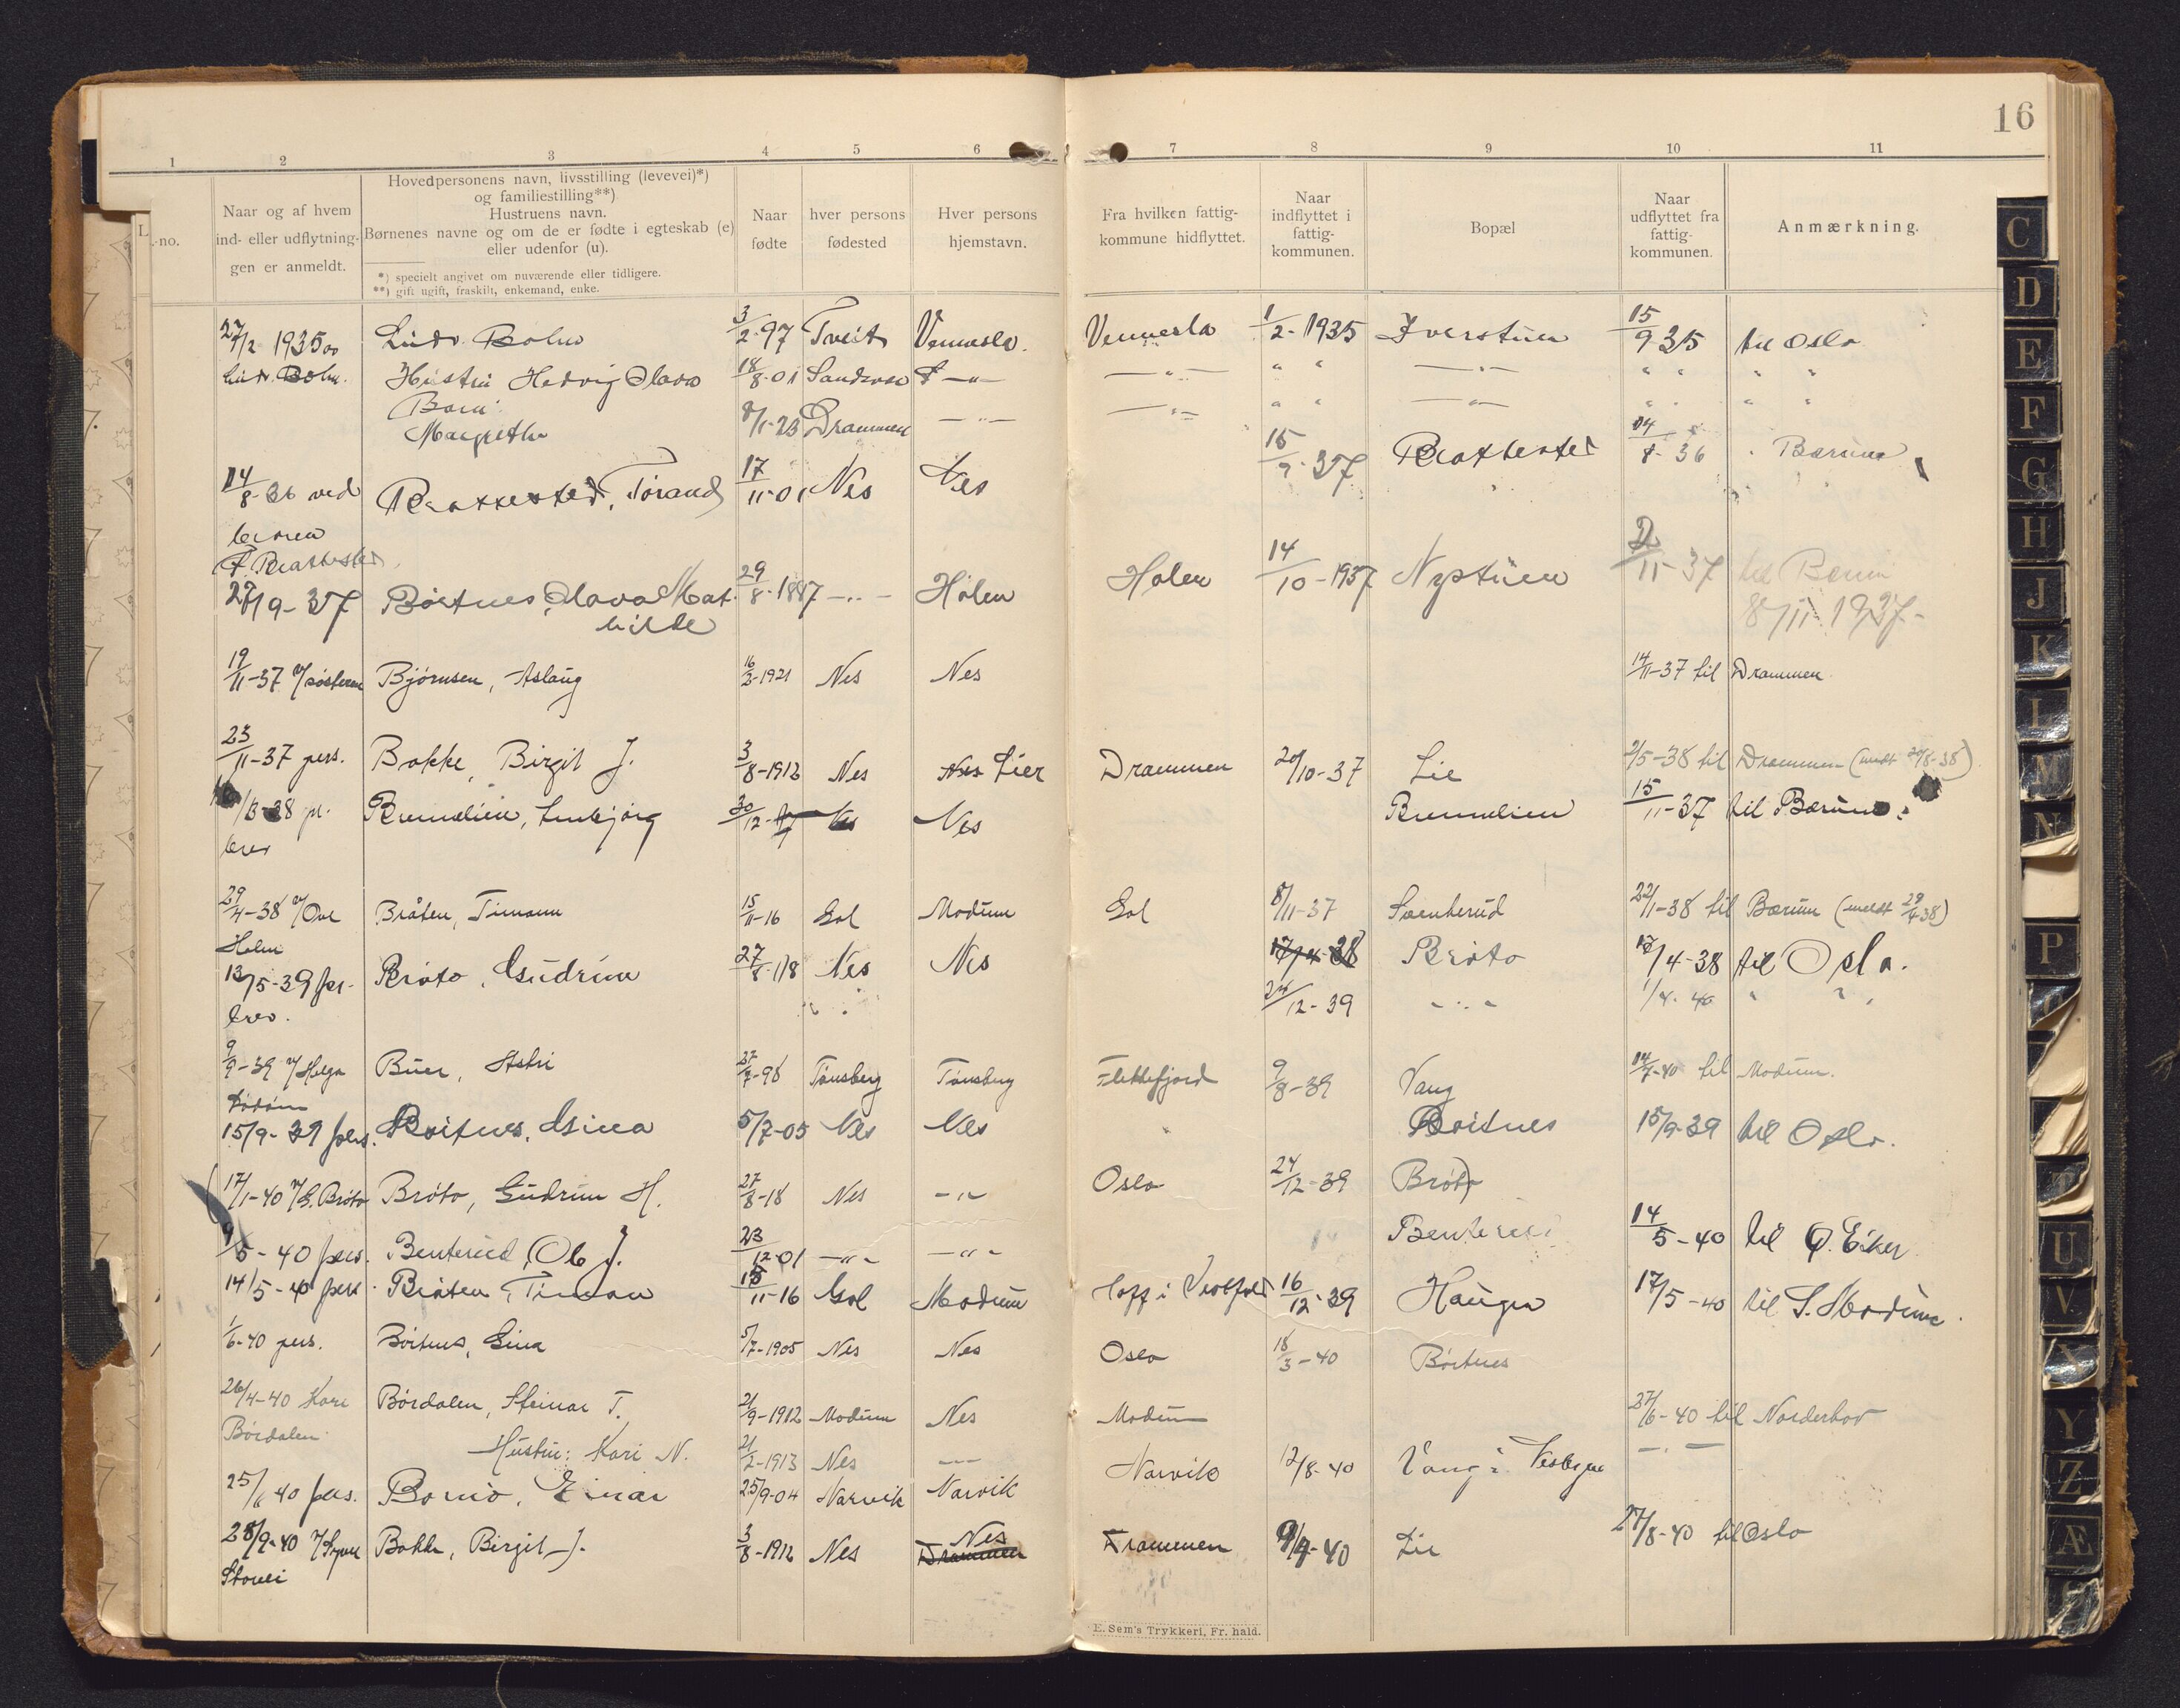 16
1 2 3 4 5 6 7 8 9 10 11
L.-no.
Naar og af hvem ind- eller udflytningen er anmeldt.
Hovedpersonens navn, livsstilling (levevei)*)
og familiestilling**)
Hustruens navn.
Børnenes navne og om de er fødte i egteskab (e)
eller udenfor (u).
*) specielt angivet om nuværende eller tidligere.
**) gift ugift, fraskilt, enkemand, enke.
Naar fødte
hver persons fødested
Hver persons hjemstavn.
Fra hvilken fattigkommune hidflyttet.
Naar indflyttet i fattigkommunen.
Bopæl
Naar udflyttet fra fattigkommunen.
Anmærkning.
27/2 1935 Ludv. Bolm 3/2-97 Tveit Vennesla. Vennesla 1/2-1935 Iverstuen 15/9 35 til Oslo
Ludv. Bolm. Hustru Hedvig Olava 18/8-01 -"- -"- " " -"- " " " "
Barn:
Margrethe 8/1-23 Drammen -"- -"- " " -"- " " " "
14/8-36 ved Brattested, Torand 17/11-01 Nes Nes 15/9-37 Brattested 14/8-36 " Bærum
29/8-1887 -"- Holen Holen 14/10-1937 Nystuen 2/11-37 til Bærum
27/9-37 Børtnes, Olava Mat-
hilde 8/11 1937-
19/11-37 v/søsteren Bjørnsen, Aslaug 16/2-1921 Nes Nes 14/11-37 til Drammen
23/11-37 pers. Bakke, Birgit J. 3/8-1912 Nes Nes Lier Drammen 20/10-37 Lie 2/5-38 til Drammen (meldt 20/8-38)
/3-38 pr. 30/12-17 Nes Nes 15/11-37 til Bærum
brev
29/4-38 v/Ove Bråten, Timann 15/11-16 Gol Modum Gol 8/11-37 Svenkerud 22/1-38 til Bærum (meldt 29/4 38)
Holm
13/5-39 per- Bråto, Gudrun 27/8-18 Nes Nes 17/4-38 Bråto 17/4-38 til Oslo.
brev. " " 24/12-39 " " " 1/4-40 " "
9/9-39 v/Helga Buer, Astri 27/7-98 Tønsberg Tønsberg Flekkefjord 9/8-39 Vang 14/7-40 til Modum.
15/9-39 pers. Børtnes, Gina 5/7-05 Nes Nes " Børtnes 15/9-39 til Oslo.
17/1-40 v/G. Bråto Bråto, Gudrun H. 27/8-18 Nes -"- Oslo 24/12-39 Bråto
9/5-40 pers. Benterud, Ole J. 23/12-01 -"- -"- Benterud 14/5-40 til Ø. Eiker
14/5-40 pers. Bråten, Timan 15/11-16 Gol Modum Hoff i Vestfold 16/12-39 Haugen 17/5-40 til S. Modum.
1/6-40 pers. Børtnes, Gina 5/7-1905 Nes Nes Oslo 18/3-40 Børtnes
26/4-40 Kari Børdalen, Steinar T. 21/9-1912 Modum Nes Modum 27/6-40 til Norderhov
Børdalen Hustru: Kari N. 21/2-1913 Nes -"- -"-
25/6 40 pers. Einar 25/9-04 Narvik Narvik Narvik 12/8-40 Vang i
28/9-40 Bakke, Birgit J. 3/8-1912 Nes Nes Drammen Drammen 9/9-40 Lie 27/8-40 til Oslo
E. Sem's Trykkeri, Fr. hald.
C
D
E
F
G
H
J
K
L
M
N
P
U
V
X
Y
Z
Æ